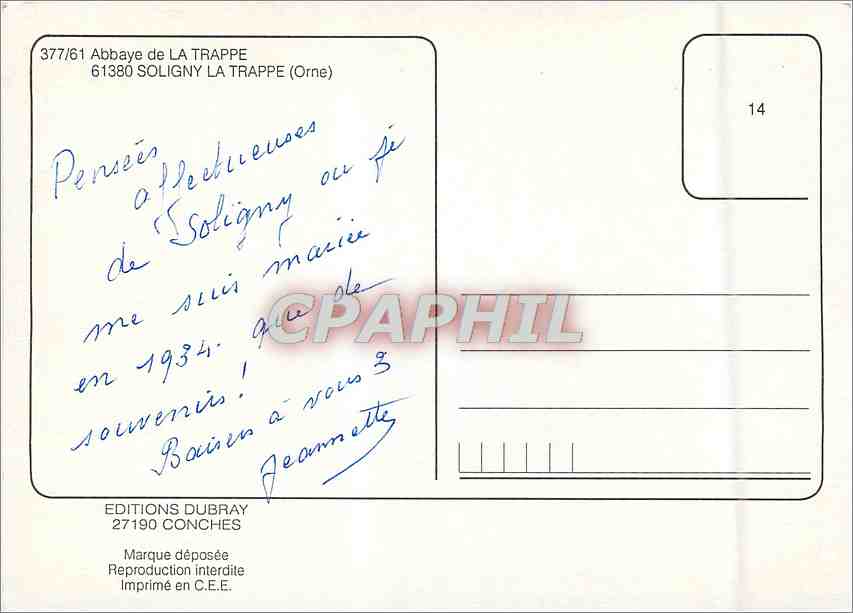 377/61 Abbaye de LA TRAPPE
61380 SOLIGNY LA TRAPPE (Orne)
14
Pensées
affectueuses
de Soligny ou je
me suis mariée
en 1934. que de
souvenirs !
Baisers à vous 3
Jeannette
CPAPHIL
EDITIONS DUBRAY
27190 CONCHES
Marque déposée
Reproduction interdite
Imprimé en C.E.E.